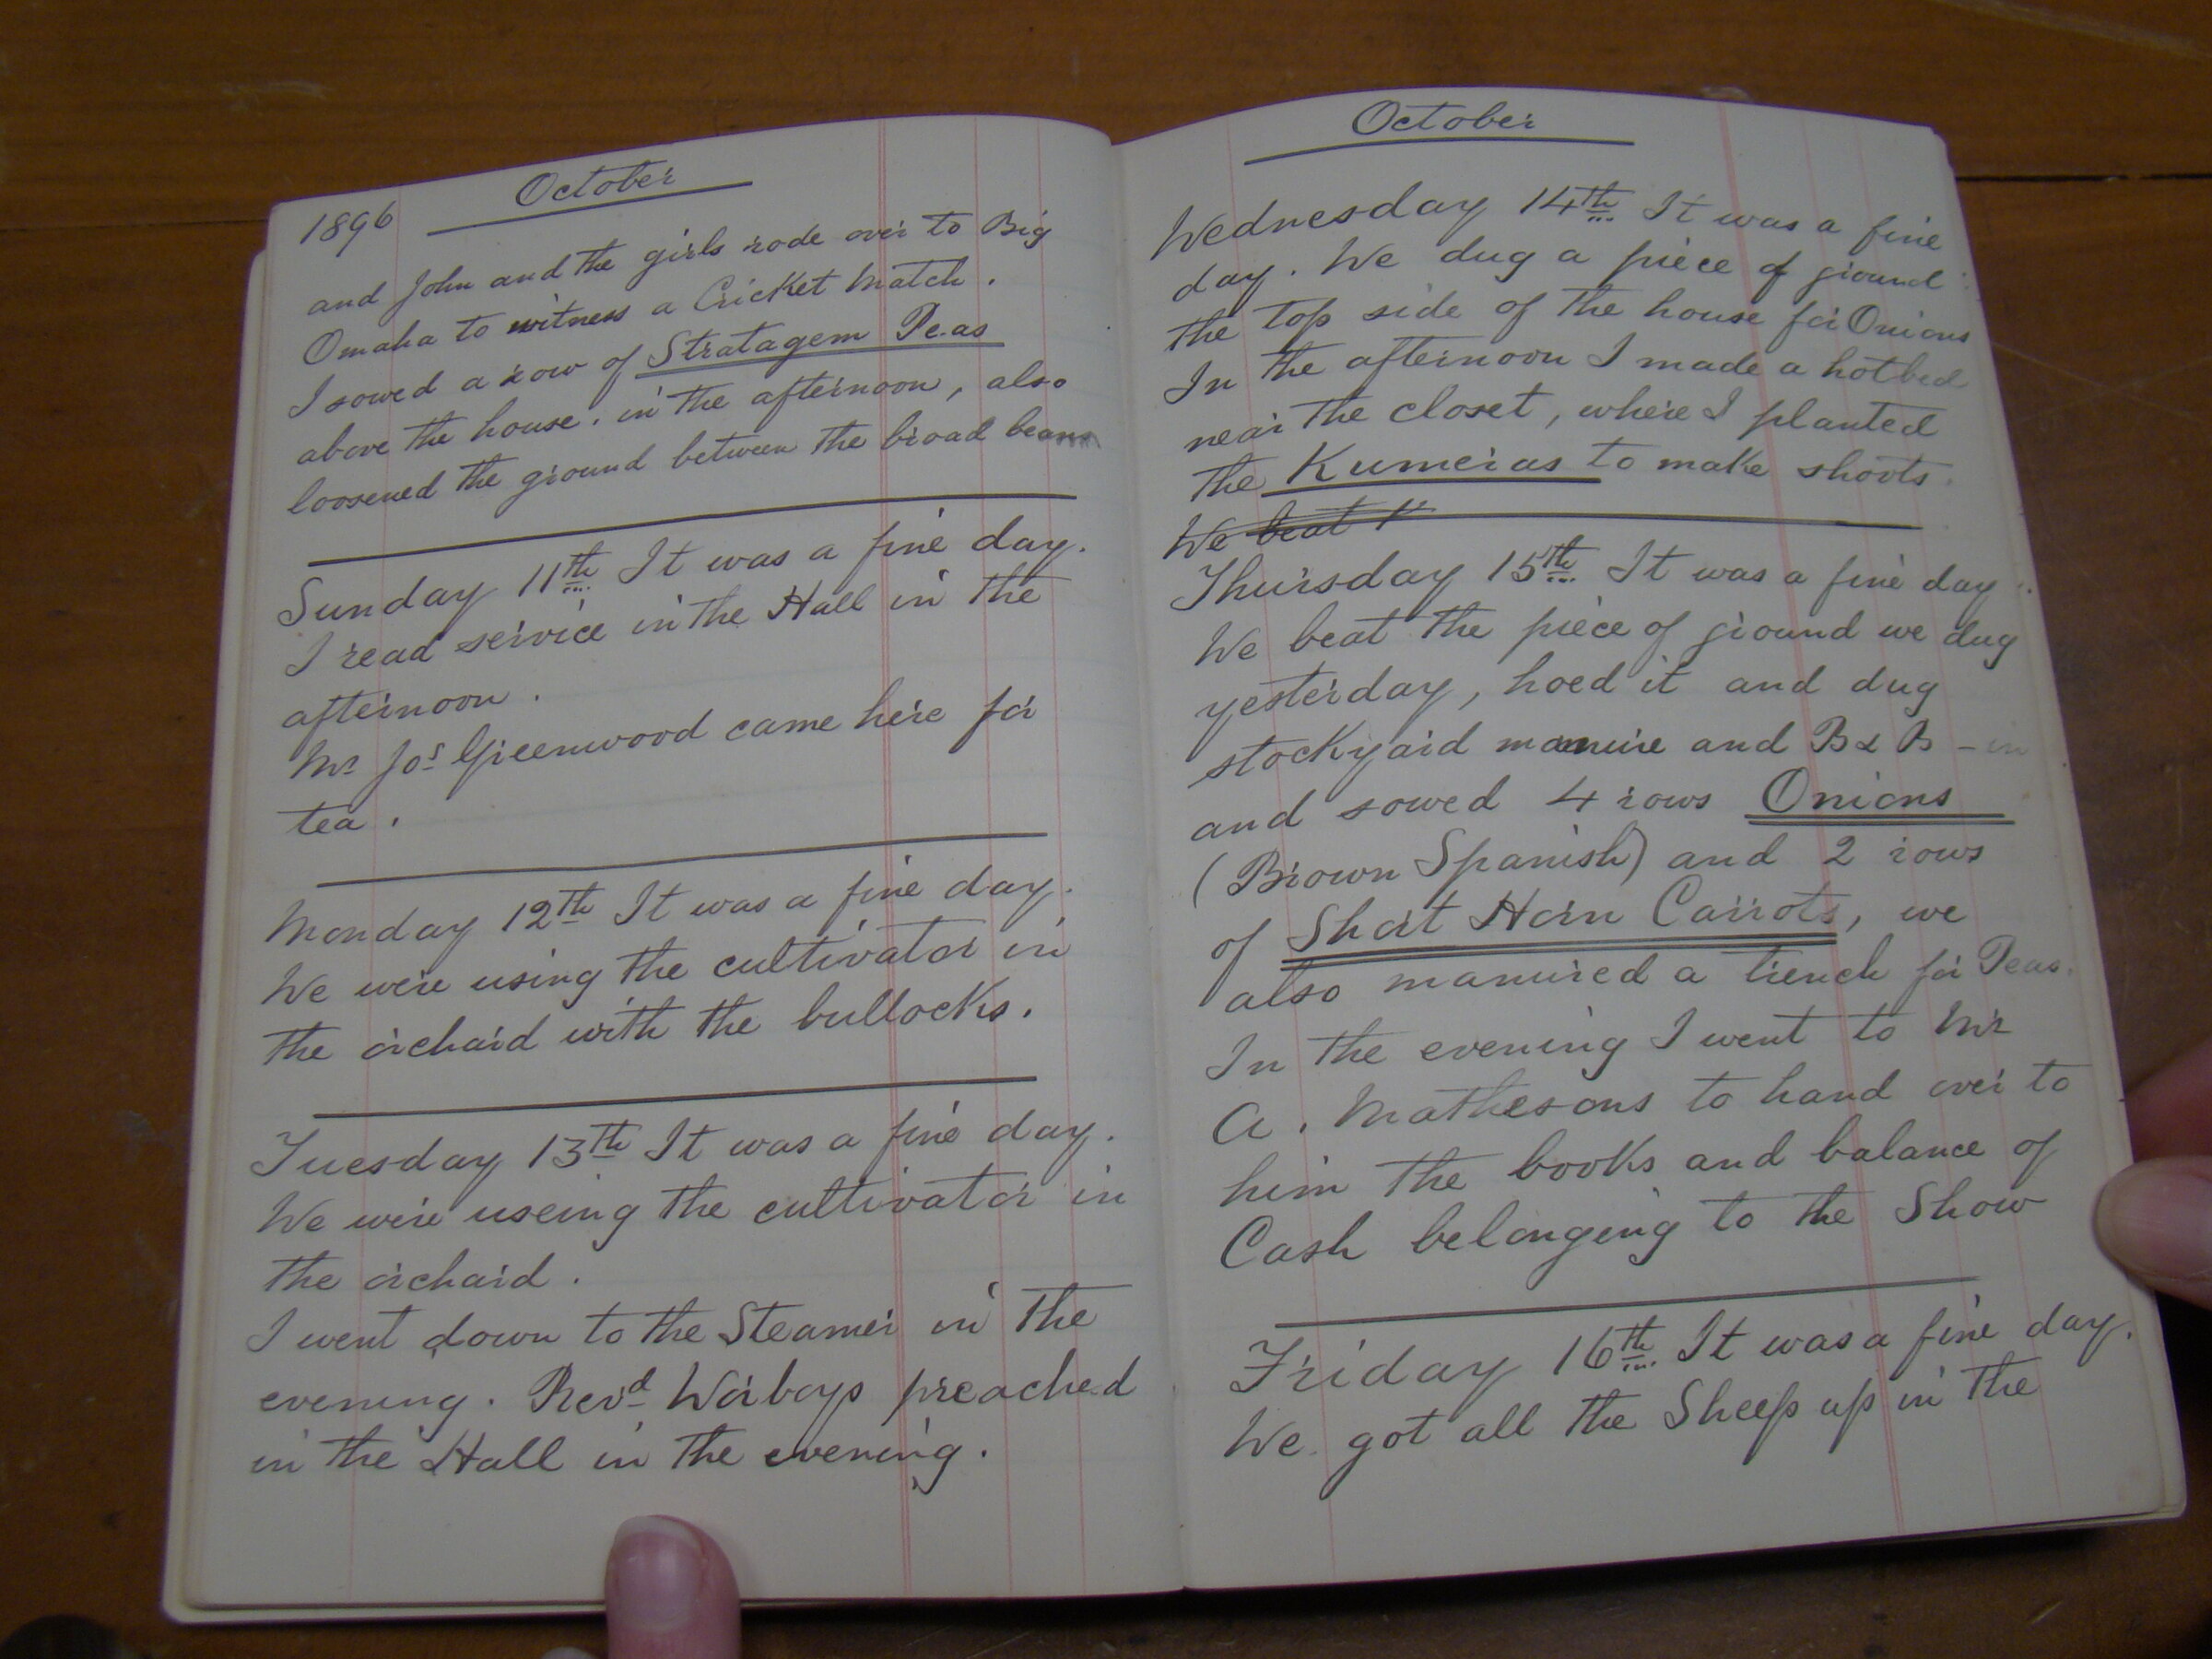 October
1896
and John and the girls rode over to Big
Omaha to witness a Cricket Match.
I sowed a row of Stratagem Peas
above the house. in the afternoon, also
loosened the ground between the broad beans
Sunday 11th It was a fine day.
I read service in the Hall in the
afternoon.
Mr Jos Greenwood came here for
tea.
Monday 12th It was a fine day.
We were using the cultivator in
the orchard with the bullocks.
Tuesday 13th It was a fine day.
We were useing the cultivator in
the orchard.
I went down to the Steamer in the
evening. Revd Worboys preached
in the Hall in the evening.
October
Wednesday 14th It was a fine
day. We dug a piece of ground
the top side of the house for Onions
In the afternoon I made a hotbed
near the closet, where I planted
the Kumeras to make shoots.
We beat
Thursday 15th It was a fine day.
We beat the piece of ground we dug
yesterday, hoed it and dug
stockyard manure and B & B - in
and sowed 4 rows Onions
(Brown Spanish) and 2 rows
of Short Horn Carrots, we
also manured a trench for Peas.
In the evening I went to Mr
A. Mathesons to hand over to
him the books and balance of
Cash belonging to the Show
Friday 16th It was a fine day.
We got all the Sheep up in the